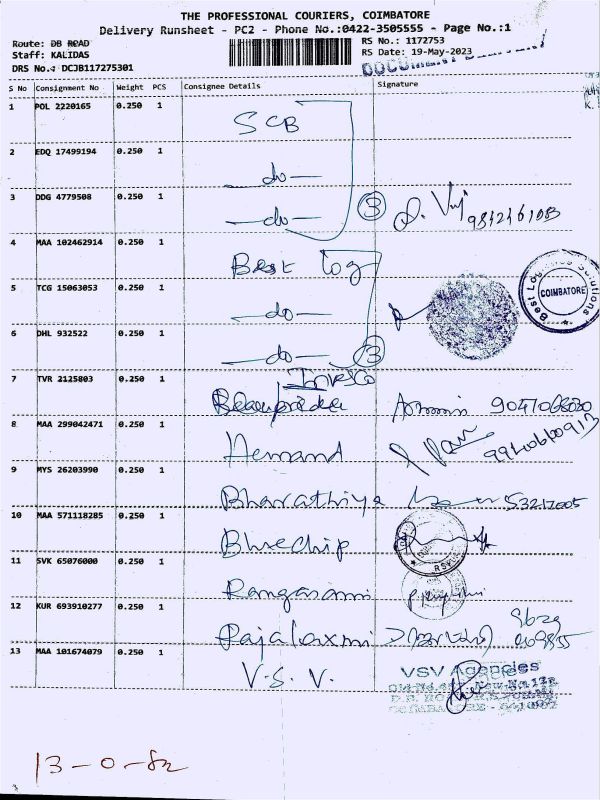 THE PROFESSIONAL COURIERS, COIMBATORE
Delivery Runsheet - PC2 - Phone No.:0422-3505555 - Page No.:1
Route: DB ROAD
RS No.: 1172753
Staff: KALIDAS
RS Date: 19-May-2023
DRS No.: DCJB117275301
DOCUMENT
S No Consignment No Weight PCS Consignee Details Signature
1 POL 2220165 0.250 1 SCB
2 EDQ 17499194 0.250 1 -do-
3 DDG 4779508 0.250 1 -do- 3
4 MAA 102462914 0.250 1 Best log
5 TCG 15063053 0.250 1 -do-
Best Solutions COIMBATORE
6 DHL 932522 0.250 1 -do- 3
7 TVR 2125803 0.250 1
8 MAA 299042471 0.250 1 Hemand
9 MYS 26203990 0.250 1 Bharathiya
10 MAA 571118285 0.250 1 Bluechip
11 SVK 65076000 0.250 1 Rangasami
12 KUR 693910277 0.250 1 Rajalaxmi
13 MAA 101674079 0.250 1 V.S.V.
VSV Agencies
COIMBATORE
13-0-